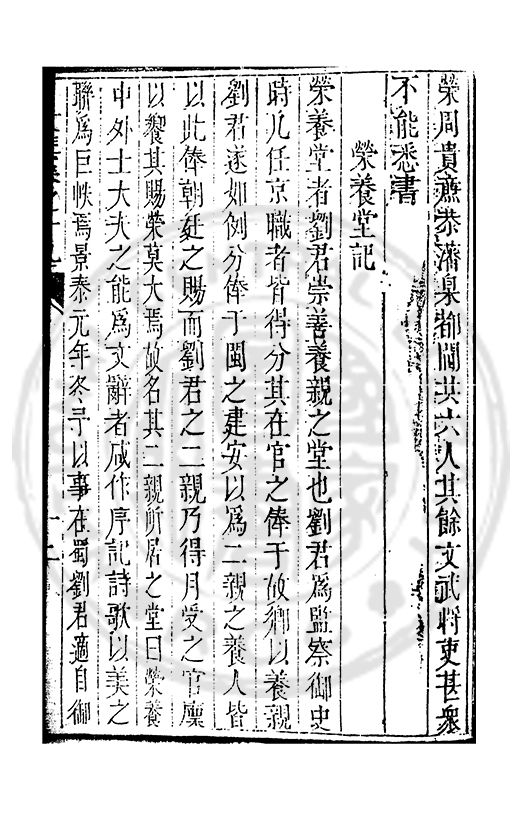 榮周貴應恭濟臬都闑洪六人其餘文武將吏甚衆
不能悉書
榮養堂記
榮養堂者劉君崇善養親之堂也劉君爲監察御史
時凡任京職者皆得分其在官之俸于故鄉以養親
劉君遂如例分俸于閩之建安以爲二親之養人皆
以此俸朝廷之賜而劉君之二親乃得月受之官廩
以饗其賜榮莫大焉故名其二親所居之堂曰榮養
中外士大夫之能爲文辭者咸作序記詩歌以美之
聯爲巨帙焉景泰元年冬予以事在蜀劉君適自御